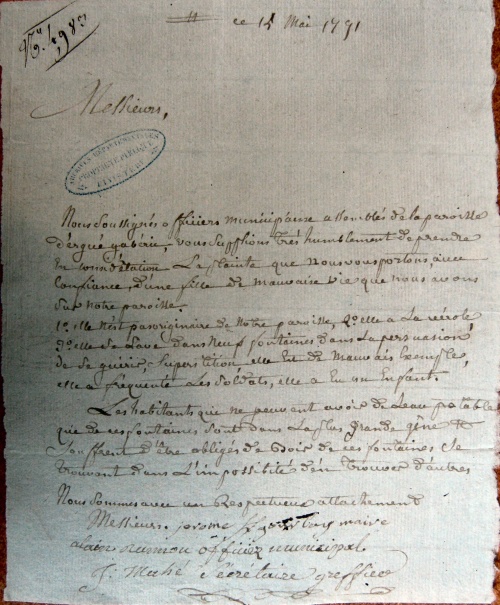 N.° 1,983
ce 15 Mai 1791
Messieurs,
ARCHIVES DÉPARTEMENTALES
PROPRIÉTÉ PUBLIQUE
FINISTÈRE
Nous soussignés officiers municipaux assemblés de la paroisse
d'ergué gabéric, vous supplions très humblement de prendre
En considération La plainte que nous vous portons, avec
Confiance, d'une fille de mauvaise vie que nous avons
sur notre paroisse.
1.° elle n'est pas originaire de notre paroisse, 2.° elle a La vérole
3.° elle se Lave dans neuf fontaines dans La persuasion
de se guérir, superstition, elle Est de mauvais Exemple,
elle a fréquenté Les soldats, elle a Eu un Enfant.
Les habitants qui ne peuvent avoir de L'eau potable
que de ces fontaines sont dans La plus grande gêne &
souffrent d'être obligés de boire de ces fontaines se
trouvant dans L'impossibité d'en trouver d'autres
Nous sommes avec un Respectueux attachement
Messieurs. jerome maire
alain dumou officier municipal
j. Mahé Secretaire greffier